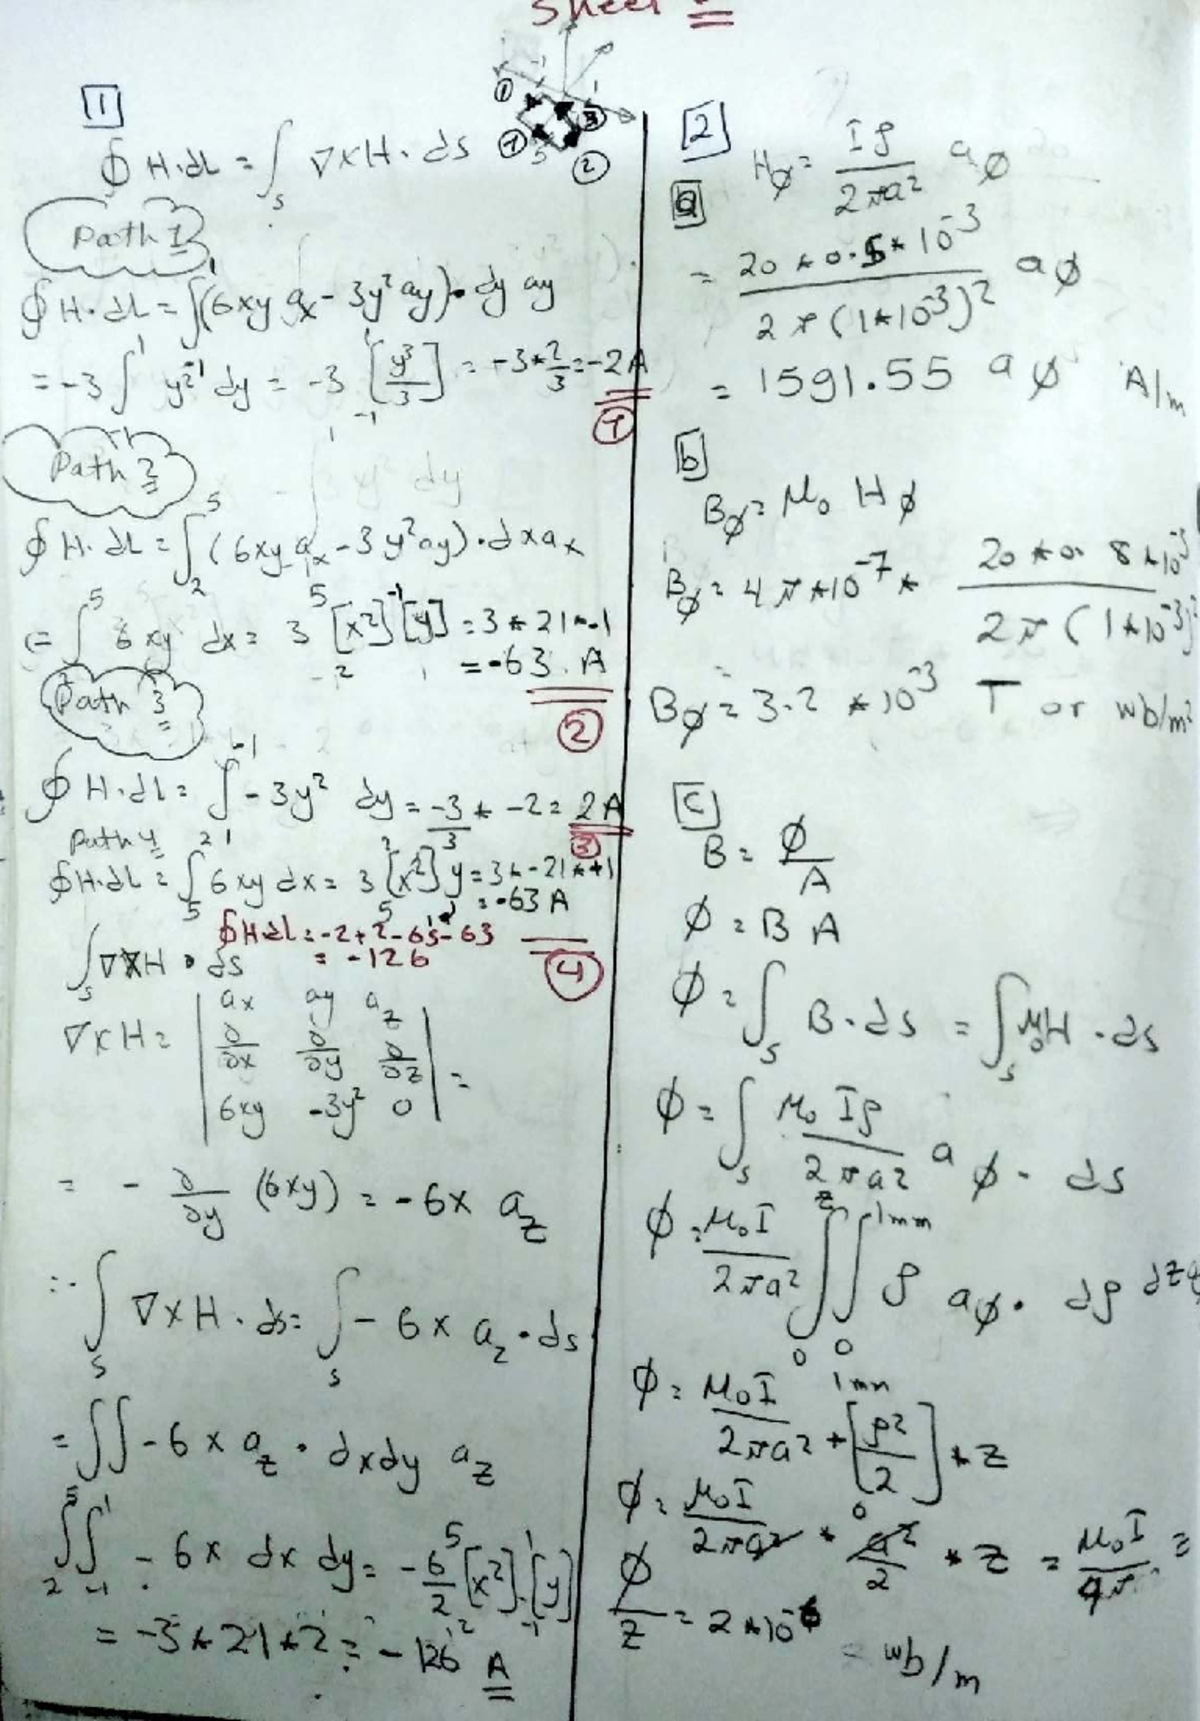 Sheet
1
∮ H·dL = ∫s ∇×H · ds
Path 1
∮ H·dL = ∫(6xy ax - 3y² ay)·dy ay
= -3 ∫ y² dy = -3 [y³/3] = -3*2/3 = -2A
1
Path 2
∮ H·dL = ∫ (6xy ax - 3y² ay)·dx ax
= ∫ 6xy dx = 3 [x²] [y] = 3*21*-1
= -63 A
2
Path 3
∮ H·dL = ∫ -3y² dy = -3/3 * -2 = 2A
3
Path 4
∮ H·dL = ∫ 6xy dx = 3 [x²] y = 3*-21*+1
= -63 A
∮ H·dL = -2+2-63-63
= -126
4
∫s ∇×H · ds
∇×H = | ax ay az
∂/∂x ∂/∂y ∂/∂z
6xy -3y² 0 | =
= - ∂/∂y (6xy) = -6x az
∴ ∫s ∇×H · ds = ∫s -6x az · ds
= ∫∫ -6x az · dxdy az
∫∫ -6x dx dy = -6/2 [x²]·[y]
= -3*21*2 = -126 A
2
Hϕ = Iρ/2πa² aϕ
a
= 20*0.5*10⁻³ / 2π(1*10⁻³)² aϕ
= 1591.55 aϕ A/m
b
Bϕ = μ₀ Hϕ
Bϕ = 4π*10⁻⁷ * 20*0.8*10⁻³ / 2π(1*10⁻³)²
Bϕ = 3.2*10⁻³ T or wb/m²
c
B = ϕ/A
ϕ = BA
ϕ = ∫s B·ds = ∫s μ₀H·ds
ϕ = ∫s μ₀Iρ/2πa² aϕ · ds
ϕ = μ₀I/2πa² ∫∫ ρ aϕ · dρ dz
ϕ = μ₀I/2πa² * [ρ²/2] * z
ϕ = μ₀I/2πa² * a²/2 * z = μ₀I/4π =
ϕ/z = 2*10⁻⁶
= wb/m